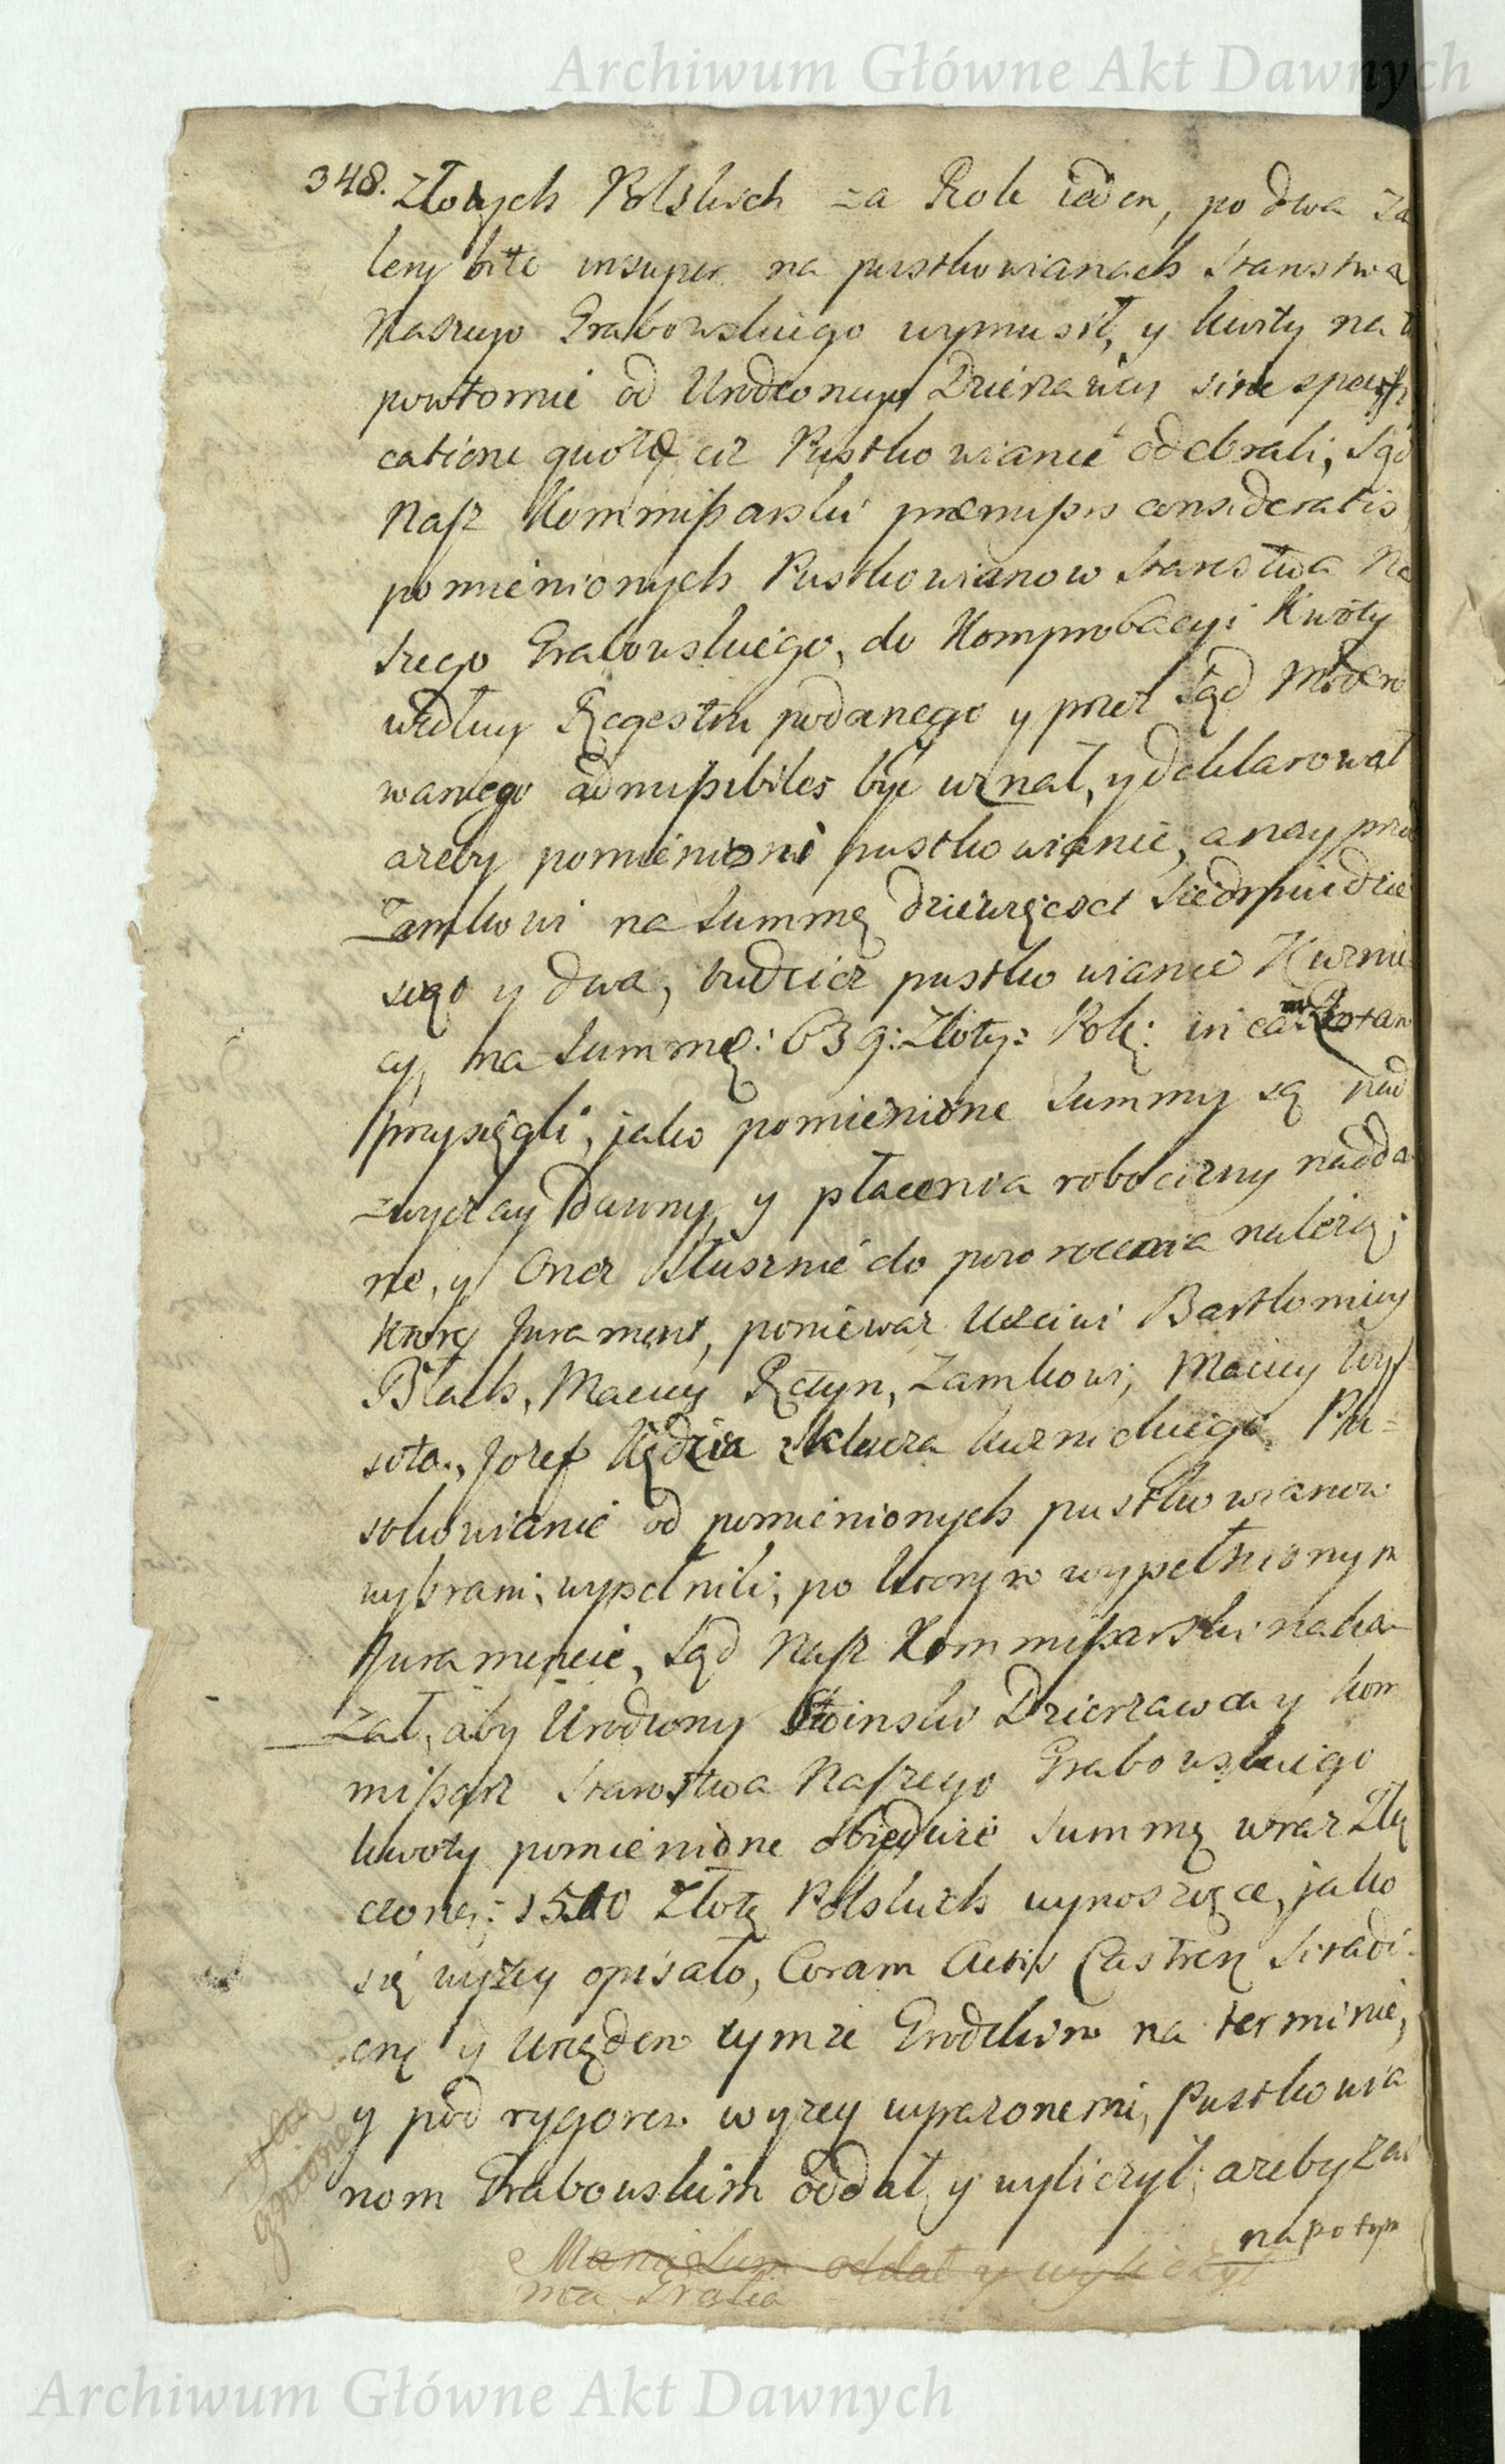 Archiwum Główne Akt Dawnych
348. Złotych Polskich za Rok ieden, po dwa ta
lery bite insuper na pustkowianach Starostwa
Naszego Grabowskiego wymusił, y kwity na
powtornie od Urodzonego Dzierzawcy sine specifi
catione quoty ciz Pustkowianie odebrali, Sąd
Nasz Kommissarski præmissis consideratis
pomienionych Pustkowianow Starostwa Na
szego Grabowskiego, do Komprobacyi Kwoty
według Regestru podanego y przez Sąd moder
wanego admissibiles być uznał, y deklarował
azeby pomienieni pustkowianie, a nayprzod
Zamkowi na Summę dziewięcset Siedmdzie
siąt y dwa, tudziez pustkowianie Kuzni
cy, na Summę: 639: Złoty: Pols: in eam rotam
przysięgli, jako pomienione Summy są nad
zwyczay dawny y płacenia robocizny nadda
ne, y Onez słusznie do powrocenia nalezą;
ktory Jurament, poniewaz Uczciwi Bartłomiey
Błach, Maciey Retyn, Zamkowi, Maciey Wys
sota, Jozef Kędzia z Klucza kuznickiego Pu=
stkowianie od pomienionych pustkowianow
wybrani, wypełnili, po ktorym wypełnionym
Juramencie, Sąd Nasz Kommissarski naka
zał, aby Urodzony Dzierzawca y kom
missarz Starostwa Naszego Grabowskiego
kwoty pomienione obiedwie Summę wraz Złą
czone: Złote Polskich wynoszące, jako
się wyzey opisało, Coram Actis Castren Siradi
en y Urzędem tymze Grodzkim na terminie,
y pod rygorem wyzey wyrazonemi, Pustkowia
nom Grabowskim oddał y wyliczył; azeby zas
na potym
oddał y wyliczył
Archiwum Główne Akt Dawnych